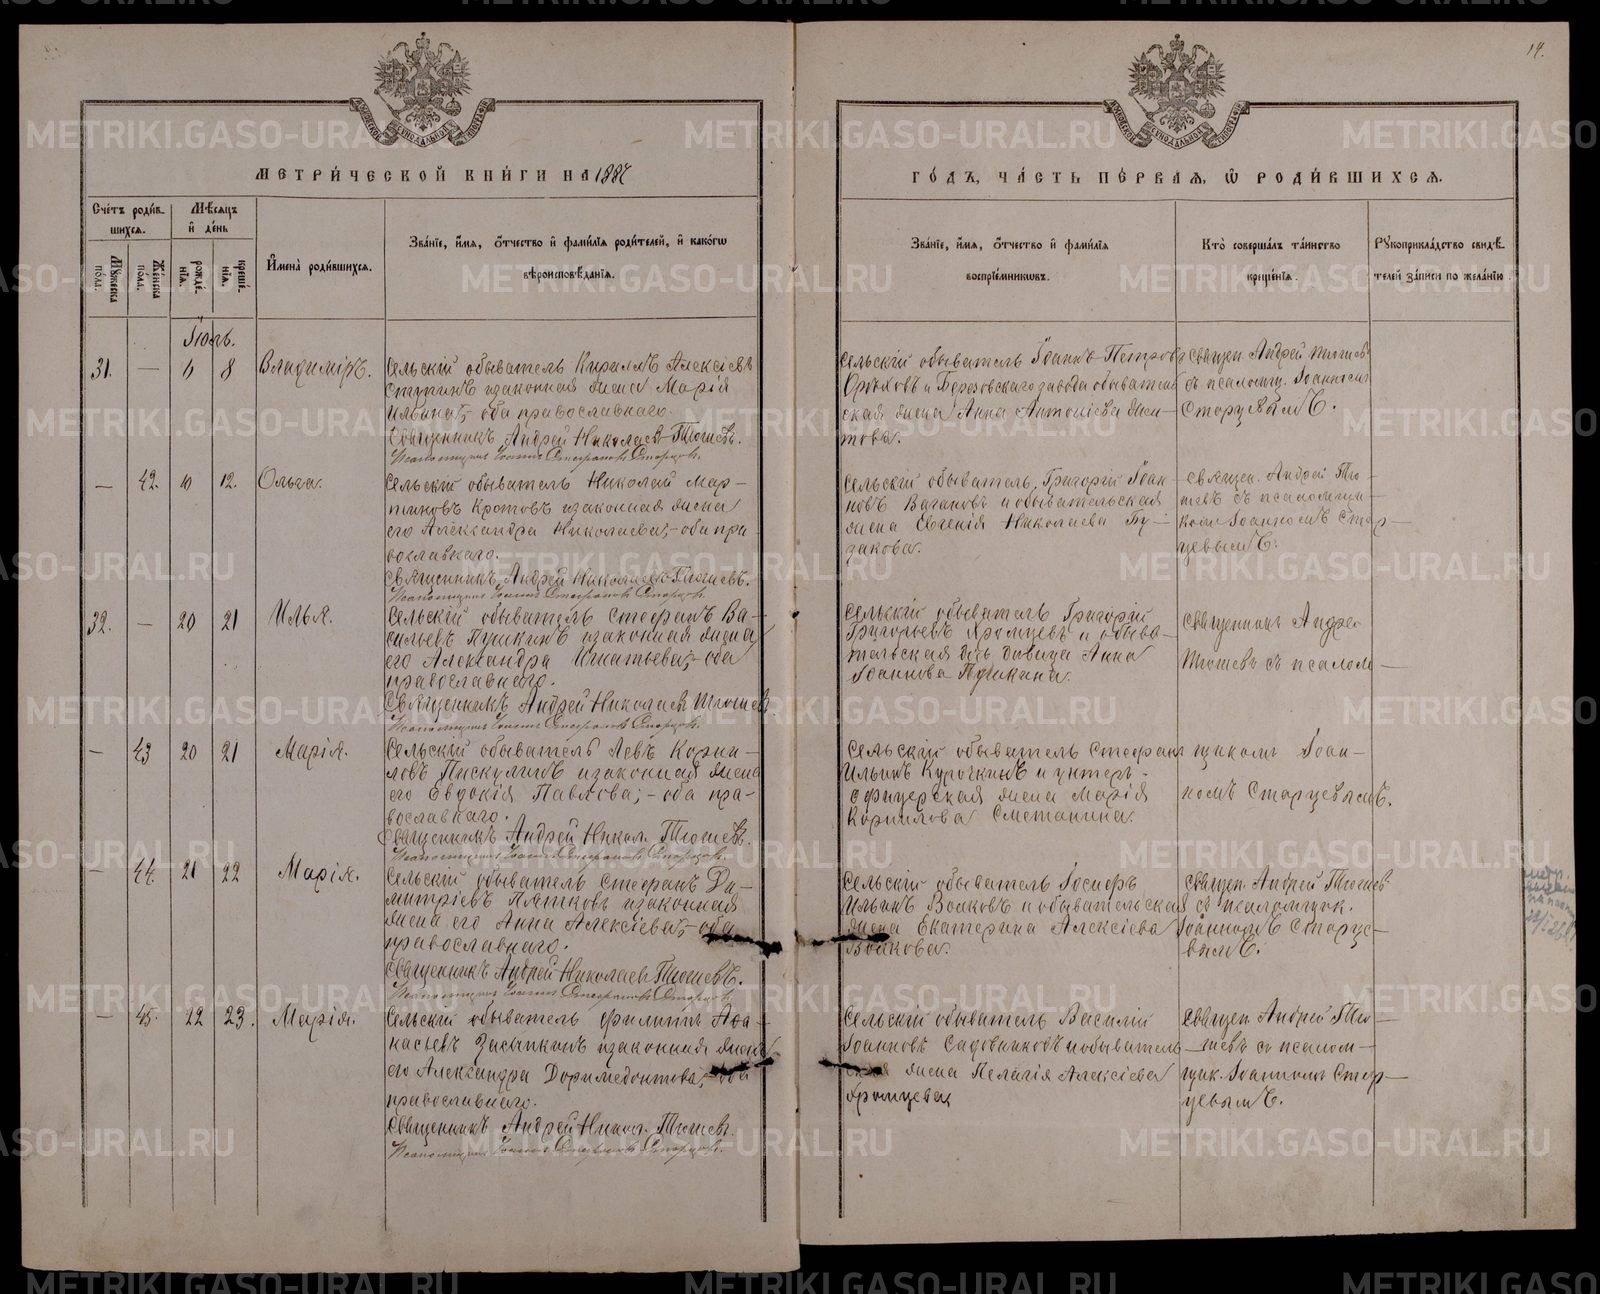 14.
МЕТРИ́ЧЕСКОЙ КНИ́ГИ НА 1887
ГО́ДЪ, ЧА́СТЬ ПЕ́РВАЯ, Ѡ РОДИ́ВШИХСЯ.
Сче́тъ роди́в-
шихся.
Мѣ́сяцъ
и де́нь
Му́жеска
по́ла.
Же́нска
по́ла.
рожде́-
нія.
креще́-
нія.
Имена̀ роди́вшихся.
Зва́ніе, и́мя, о́тчество и фами́лія роди́телей, и како́гѡ
вѣроисповѣ́данія.
Зва́ніе, и́мя, о́тчество и фами́лія
воспріе́мниковъ.
Кто̀ соверша́лъ та́инство
креще́нія.
Рукоприкла́дство свидѣ́-
телей за́писи по жела́нію.
Іюль.
31. — 6 8 Владиміръ.
Сельскій обыватель Кириллъ Алексіевъ
и законная жена Марія
Ильина, оба православнаго.
Священникъ Андрей Николаевъ Тюшевъ.
Псаломщикъ Іоаннъ Стефановъ Старцовъ.
Сельскій обыватель Іоаннъ Петровъ
Орѣховъ и Березовскаго завода обыватель-
ская жена Анна Антоніева
това.
Священ. Андрей Тюшевъ
съ псаломщ. Іоанномъ
Старцевымъ.
— 42. 10 12. Ольга.
Сельскій обыватель Николай Мар-
тиновъ Кротовъ и законная жена
его Александра Николаева, оба пра-
вославнаго.
Священникъ Андрей Николаевъ Тюшевъ.
Псаломщикъ Іоаннъ Стефановъ Старцов.
Сельскій обыватель Григорій Іоан-
новъ Вагановъ и обывательская
жена Евгенія Николаева Бу-
закова.
Священ. Андрей Тю-
шевъ съ псаломщи-
комъ Іоанномъ Стар-
цевымъ.
32. — 20 21 Илья.
Сельскій обыватель Стефанъ Ва-
сильевъ Пушкинъ и законная жена
его Александра Игнатьева, оба
православнаго.
Священникъ Андрей Николаевъ Тюшев.
Псаломщикъ Іоаннъ Стефановъ Старцовъ.
Сельскій обыватель Григорій
Григорьевъ Хромцевъ и обыва-
тельская дѣвица Анна
Іоаннова Пушкина.
Священникъ Андрей
Тюшевъ съ псалом-
— 43 20 21 Марія.
Сельскій обыватель Левъ Корни-
ловъ Пискулинъ и законная жена
его Евдокія Павлова; — оба пра-
вославнаго.
Священникъ Андрей Никол. Тюшевъ.
Псаломщикъ Іоаннъ Стефановъ Старцовъ.
Сельскій обыватель Стефанъ
Ильинъ Курочкинъ и унтеръ-
офицерская жена Марія
Корнилова Сметанина.
щикомъ Іоан-
номъ Старцевымъ.
— 44. 21 22 Марія.
Сельскій обыватель Стефанъ Ди-
митріевъ Пятковъ и законная
жена его Анна Алексіева, оба
православнаго.
Священникъ Андрей Николаевъ Тюшевъ.
Псаломщикъ Іоаннъ Стефановъ Старцов.
Сельскій обыватель Іосифъ
Ильинъ Волковъ и обывательская
жена Екатерина Алексіева
Волкова.
Священ. Андрей Тюшевъ
съ псаломщик.
Іоанномъ Старце-
вымъ.
— 45. 22 23. Марія.
Сельскій обыватель Филиппъ Афа-
насьевъ Засыпкинъ и законная жена
его Александра Доримедонтова, оба
православнаго.
Священникъ Андрей Никол. Тюшев.
Псаломщикъ Іоаннъ Стефановъ Старцов.
Сельскій обыватель Василій
Іоанновъ Садовниковъ и обыватель-
ская жена Пелагія Алексіева
Хромцева
Священ. Андрей Тю-
шевъ съ псалом-
щик. Іоанномъ Стар-
цевымъ.
METRIKI.GASO-URAL.RU